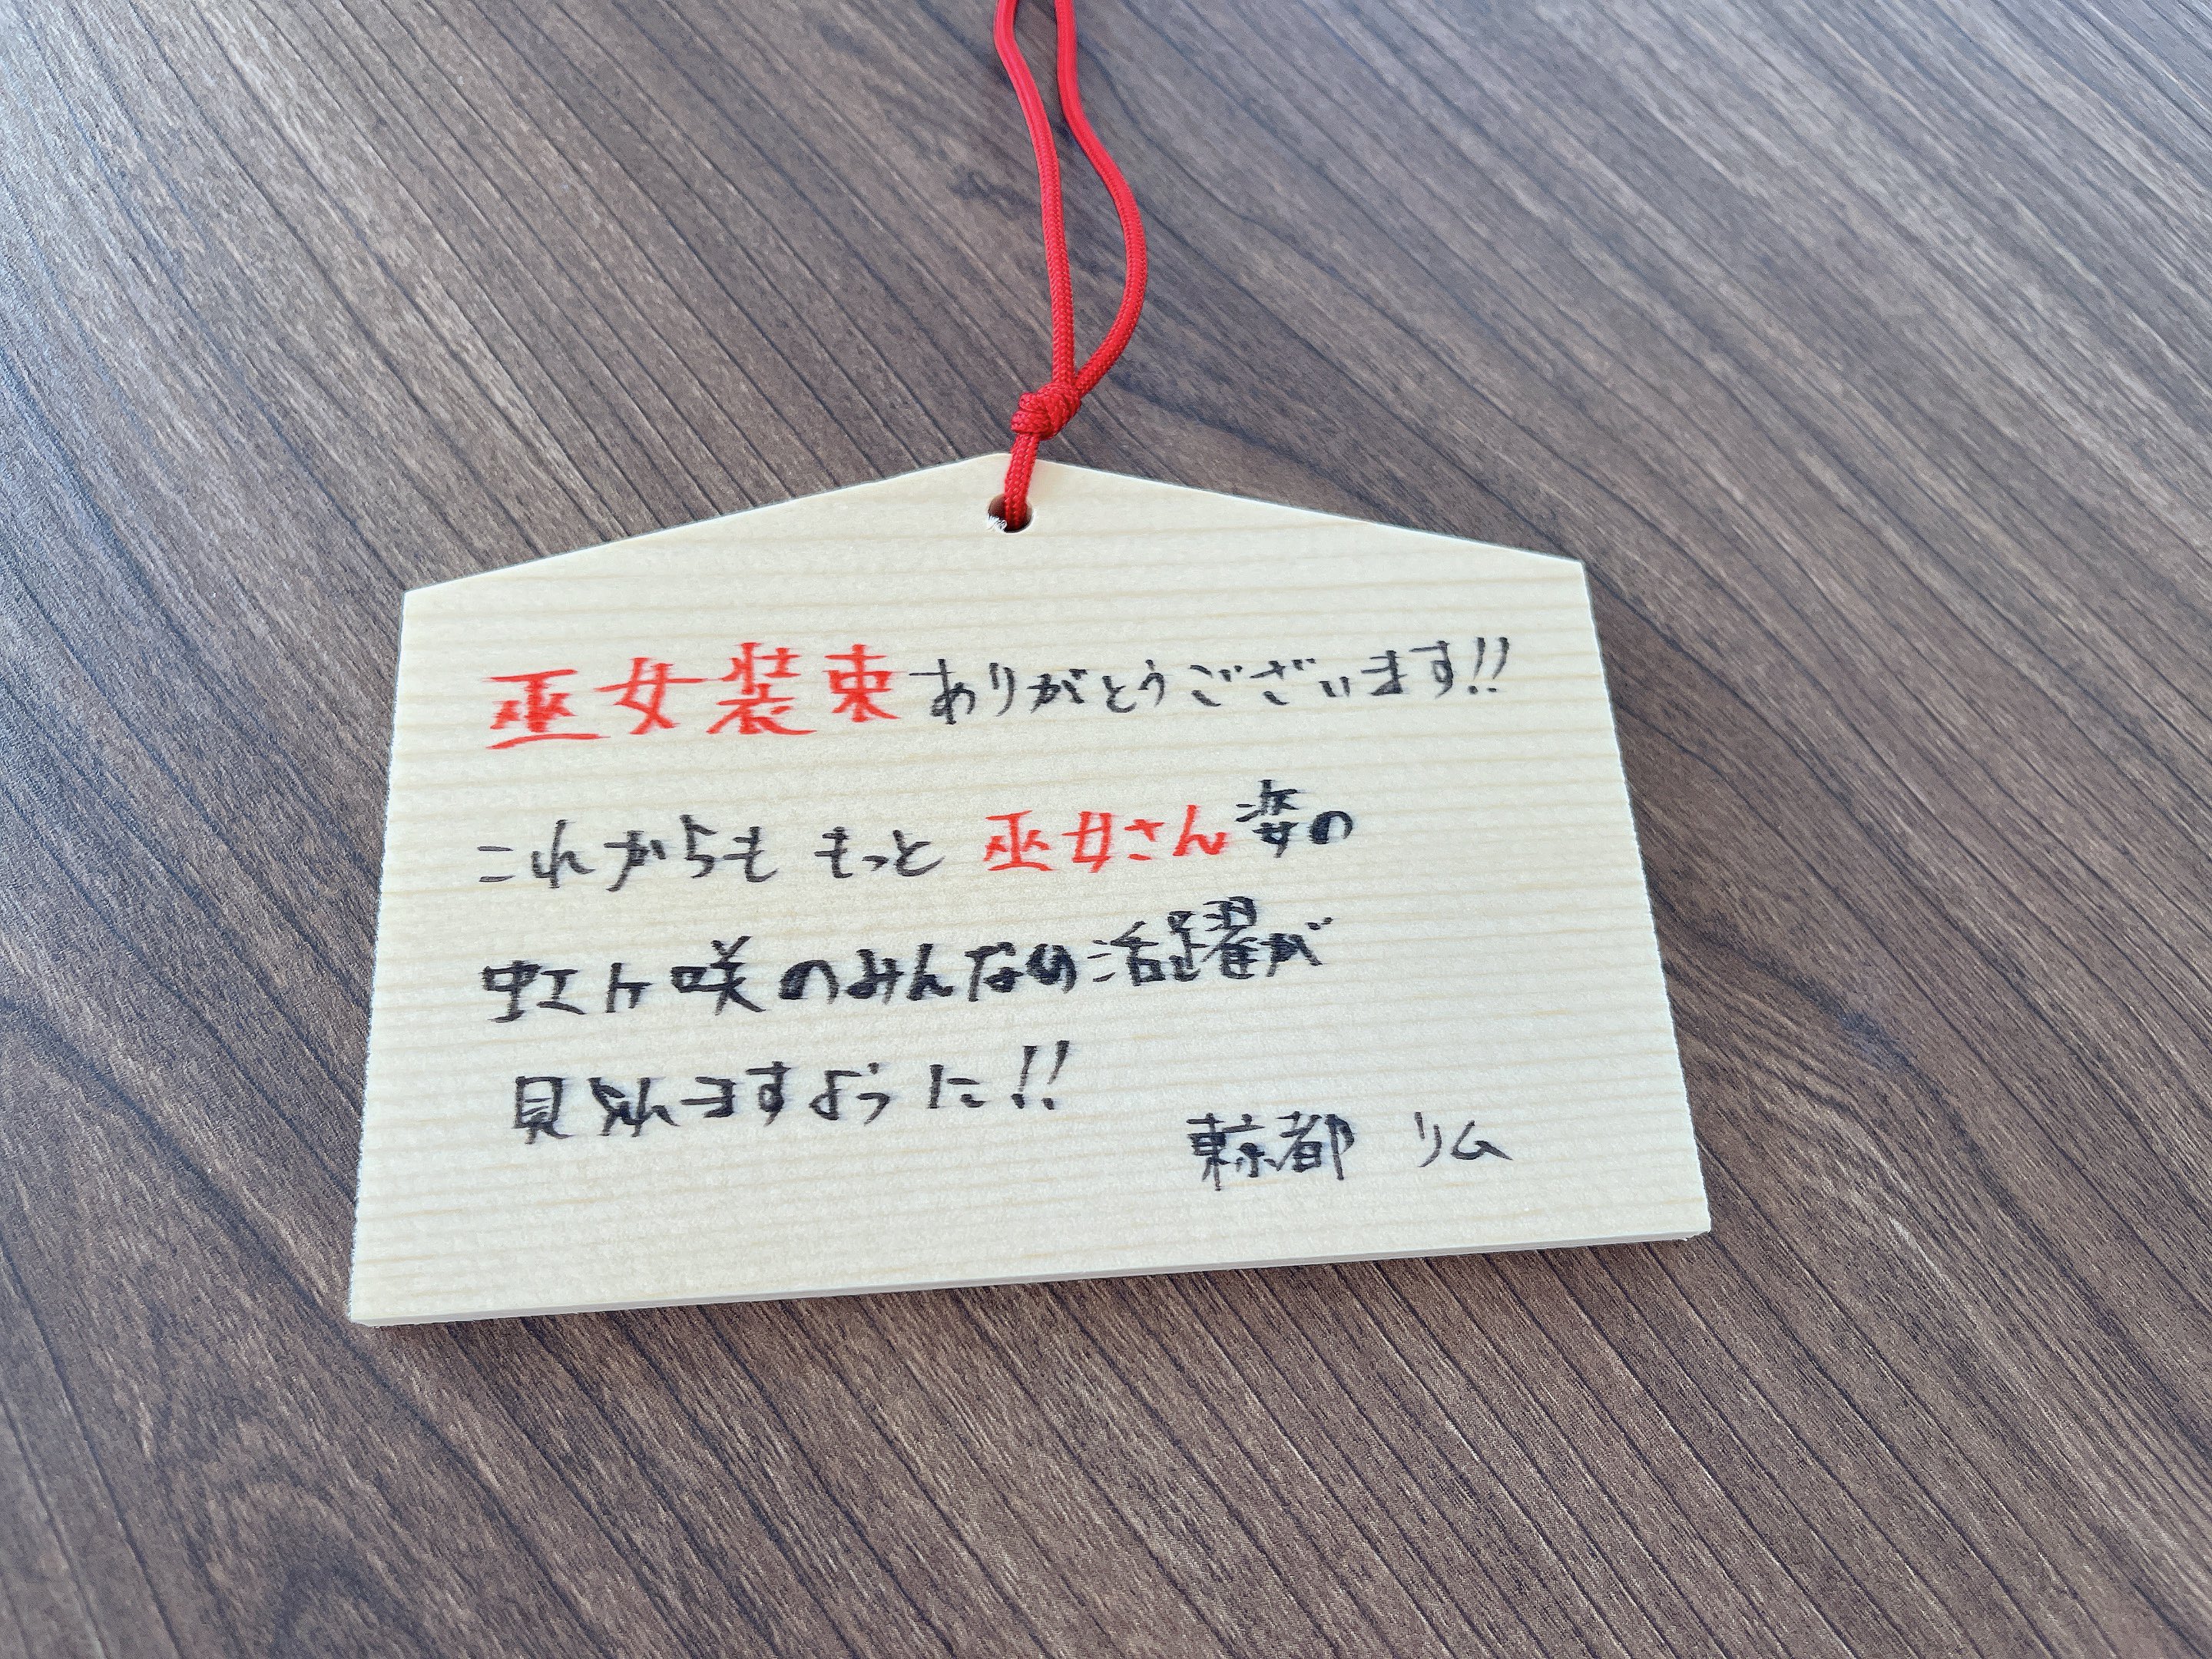 巫女装束ありがとうございます!!
これからももっと巫女さん姿の
虹ヶ咲のみんなの活躍が
見れますように!!
東京都 リム